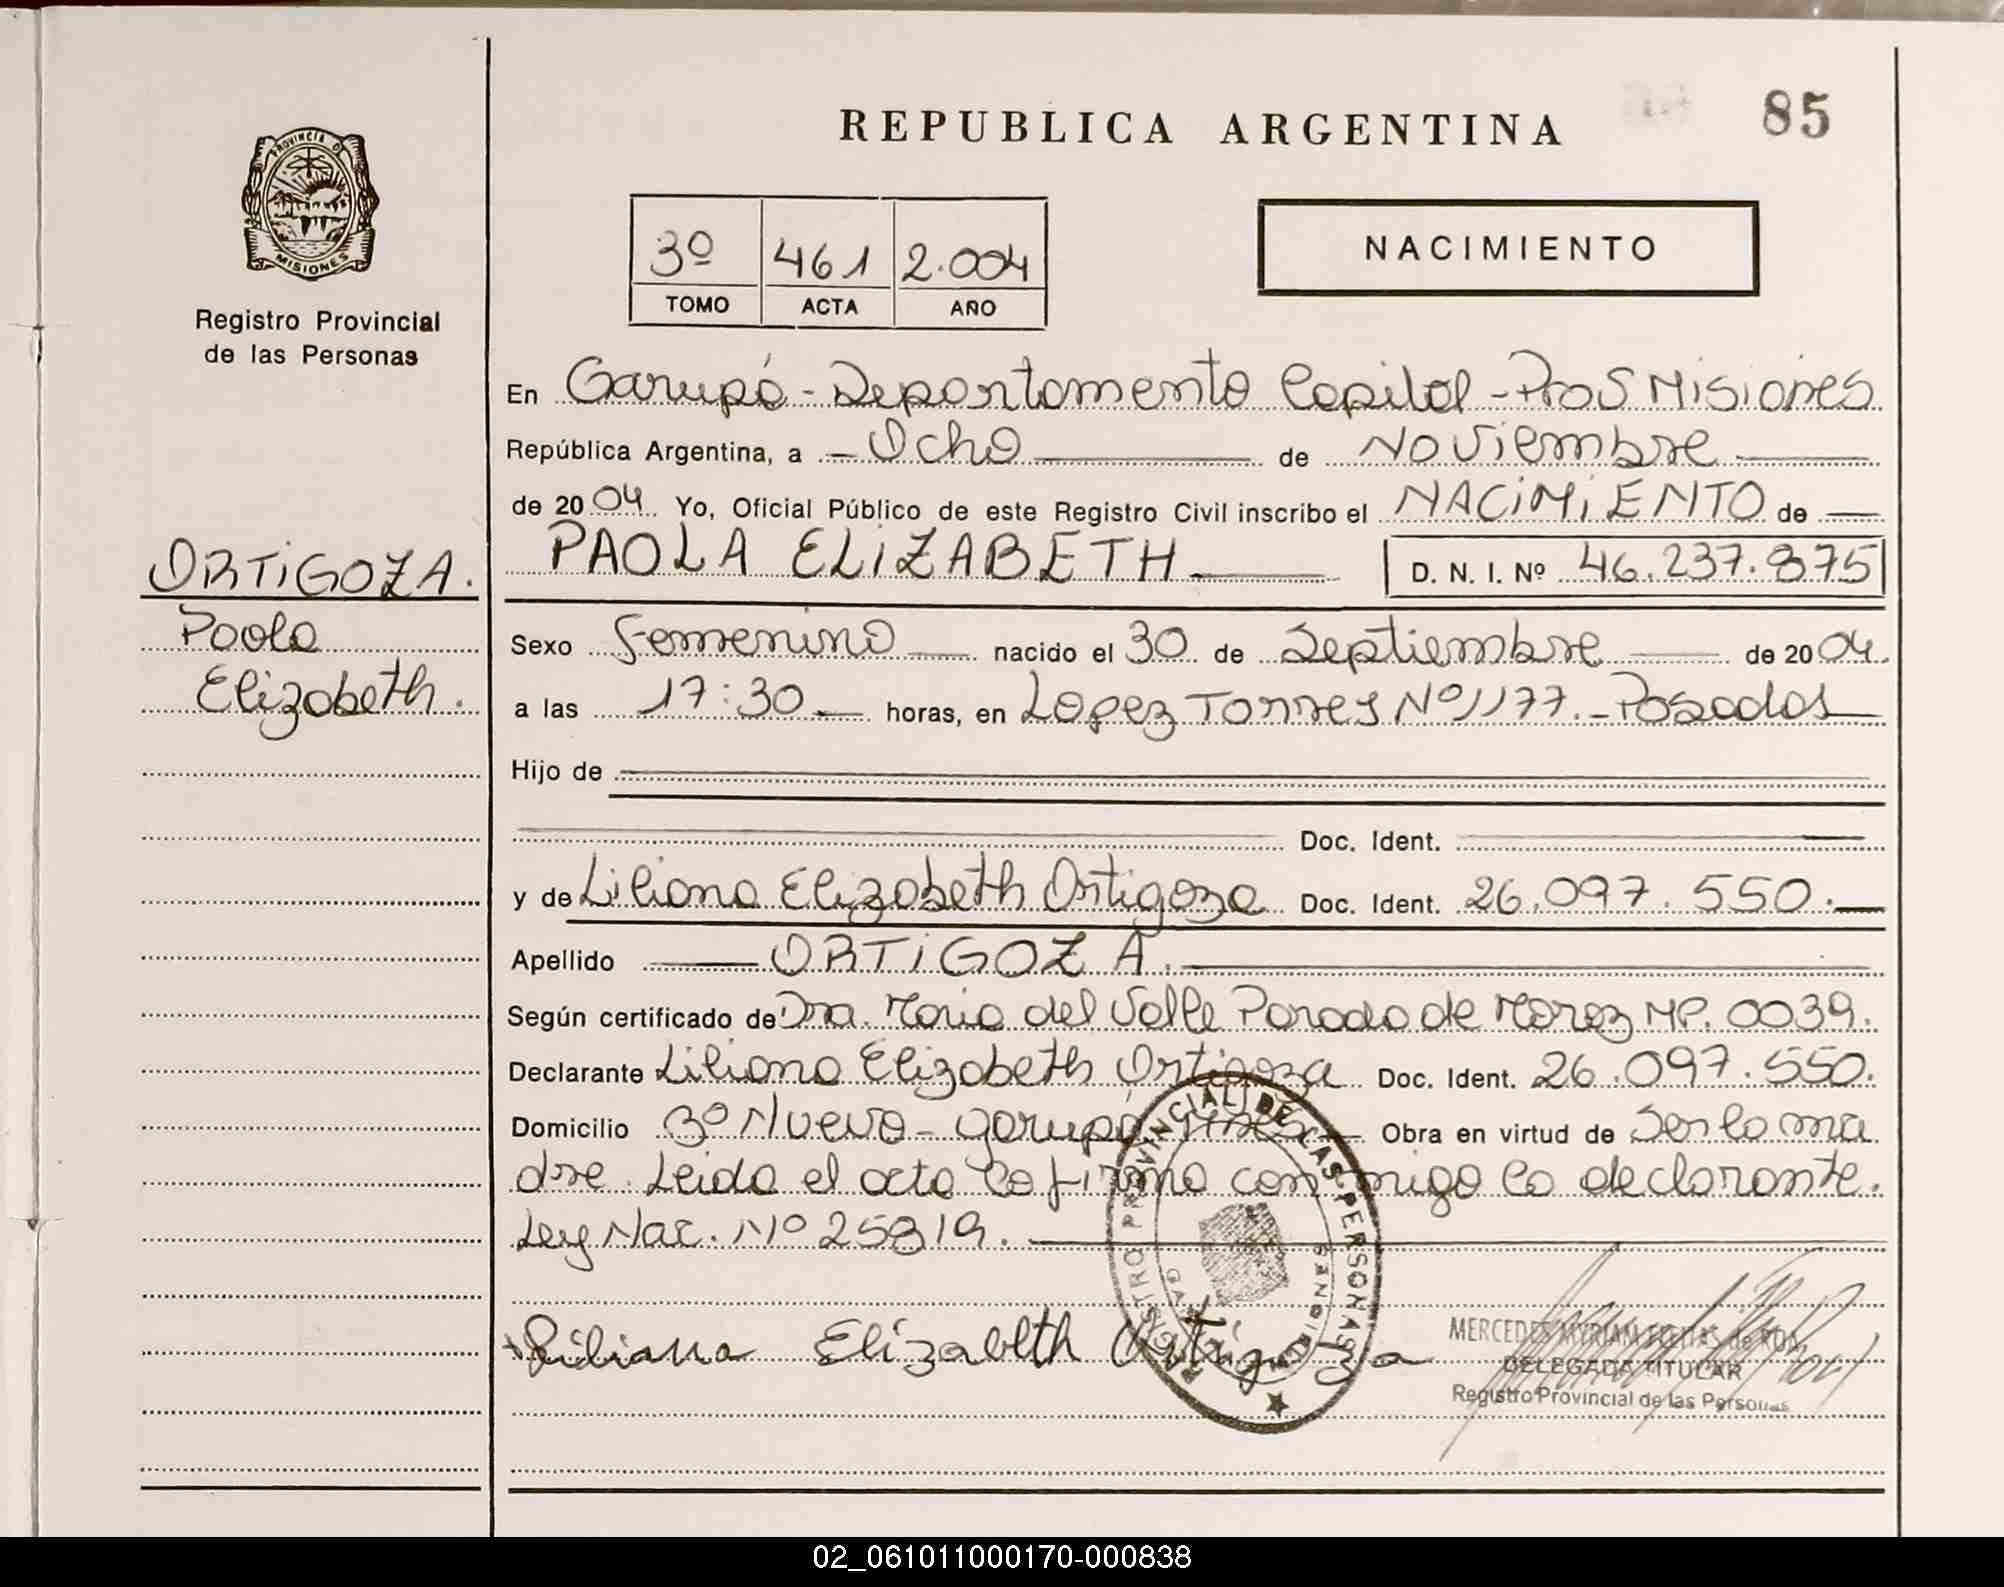 REPUBLICA ARGENTINA
85
PROVINCIA DE
MISIONES
Registro Provincial
de las Personas
3º 461 2.004
TOMO ACTA AÑO
NACIMIENTO
ORTIGOZA.
Paola
Elizabeth.
En Garupá - Departamento Capital - Misiones
República Argentina, a Ocho de Noviembre
de 2004. Yo, Oficial Público de este Registro Civil inscribo el NACIMIENTO de
PAOLA ELIZABETH D. N. I. Nº 46.237.875
Sexo Femenino nacido el 30 de Septiembre de 2004.
a las 17:30 horas, en Lopez Torres Nº 1177.- Posadas
Hijo de
Doc. Ident.
y de Liliana Elizabeth Ortigoza Doc. Ident. 26.097.550.
Apellido ORTIGOZA.
Según certificado de Dra. Maria del Valle Parada de MP. 0039.
Declarante Liliana Elizabeth Ortigoza Doc. Ident. 26.097.550.
Domicilio Bº Nuevo - Garupá Obra en virtud de Ser la ma
dre. Leida el acta la firma conmigo la declarante.
Ley Nac. Nº 25819.
Liliana Elizabeth Ortigoza
REGISTRO PROVINCIAL DE LAS PERSONAS
MERCEDES MYRIAM FREITAS de ROA
DELEGADA TITULAR
Registro Provincial de las Personas
02_061011000170-000838